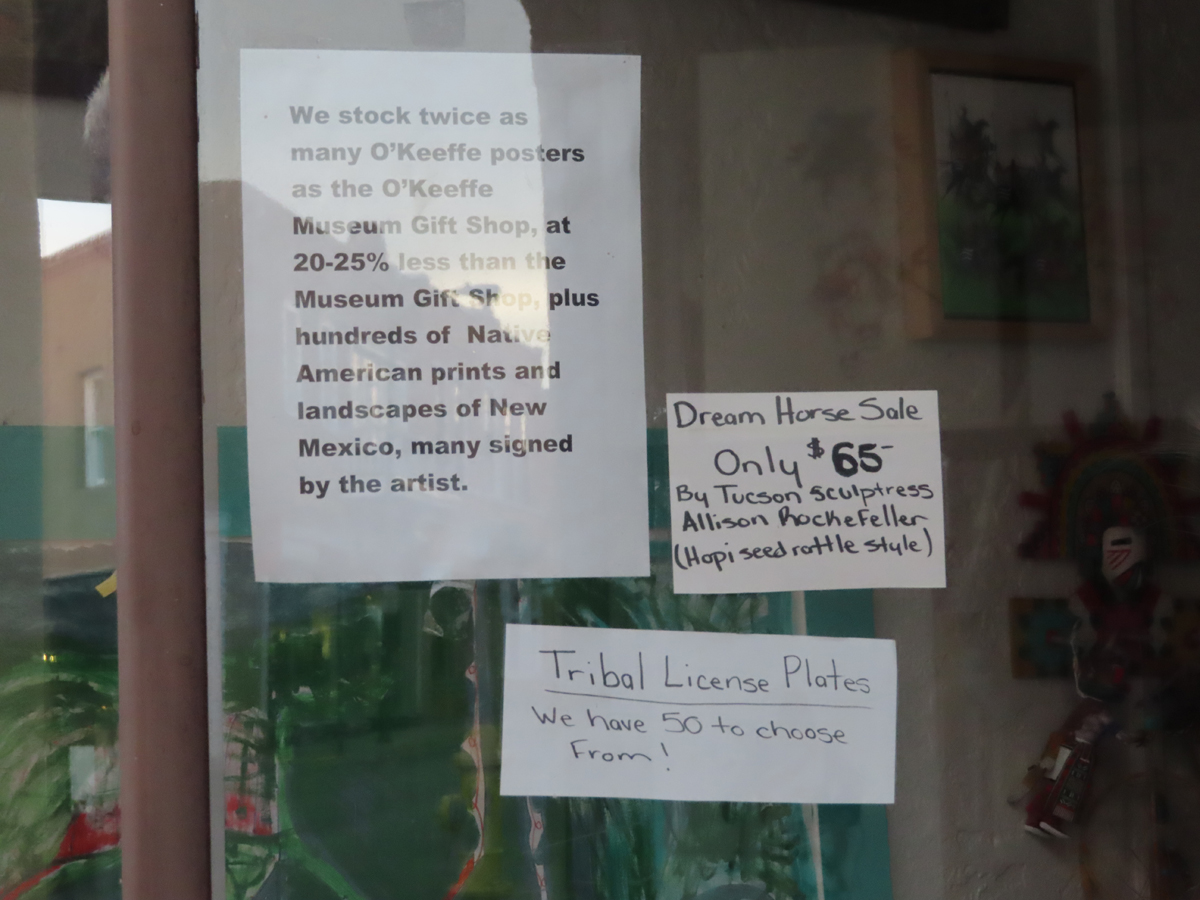 We stock twice as
many O'Keeffe posters
as the O'Keeffe
Museum Gift Shop, at
20-25% less than the
Museum Gift Shop, plus
hundreds of Native
American prints and
landscapes of New
Mexico, many signed
by the artist.
Dream Horse Sale
Only $65-
By Tucson sculptress
Allison Rockefeller
(Hopi seed rattle style)
Tribal License Plates
We have 50 to choose
From!